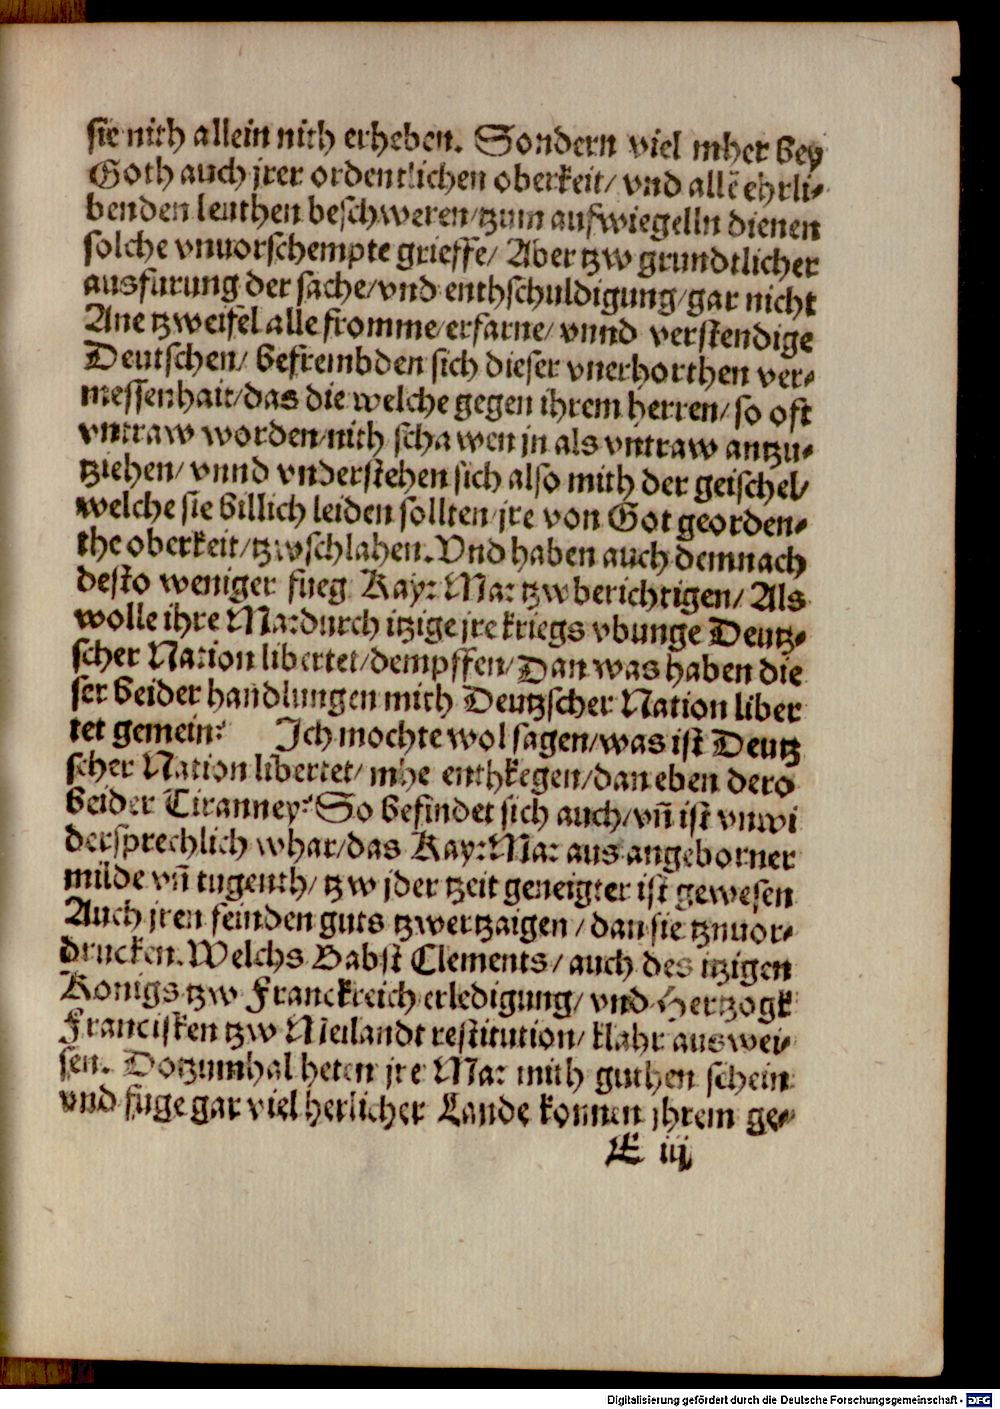 sie nith allein nith erheben. Sondern viel mher bey
Goth auch jrer ordentlichen oberkeit/ vnd allē ehrli⸗
benden leuthen beschweren/tzum aufwiegelln dienen
solche vnuorschempte grieffe/ Aber tzw grundtlicher
ausfurung der sache/vnd enthschuldigung/gar nicht
Ane tzweifel alle fromme/erfarne/ vnnd verstendige
Deutschen/ befrembden sich dieser vnerhorthen ver⸗
messenhait/das die welche gegen ihrem herren/so oft
vntraw worden/nith schawen jn als vntraw antzu⸗
tziehen/ vnnd vnderstehen sich also mith der geischel/
welche sie billich leiden sollten/jre von Got georden⸗
the oberkeit/tzwschlahen. Vnd haben auch demnach
desto weniger fueg Kay: Ma: tzw berichtigen/ Als
wolle ihre Ma:durch itzige jre kriegs vbunge Deutz⸗
scher Nation libertet/dempffen/Dan was haben die
ser beider handlungen mith Deutzscher Nation liber
tet gemein? Ich mochte wol sagen/was ist Deutz
scher Nation libertet/ mhe enthkegen/dan eben dero
beider Tiranney? So befindet sich auch/vñ ist vnwi
dersprechlich whar/das Kay:Ma: aus angeborner
milde vñ tugenth/ tzw jder tzeit geneigter ist gewesen
Auch jren feinden guts tzwertzaigen/ dan sie tzuuor⸗
drucken. Welchs Babst Clements/ auch des itzigen
Konigs tzw Franckreich erledigung/ vnd Hertzogk
Francisken tzw Meilandt restitution/ klahr auswei⸗
sen. Dotzumhal heten jre Ma: mith guthen schein
vnd fuge gar viel herlicher Lande konnen jhrem ge⸗
E iij
Digitalisierung gefördert durch die Deutsche Forschungsgemeinschaft - DFG